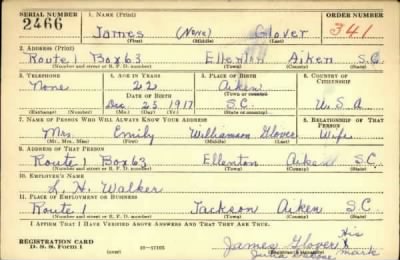 SERIAL NUMBER 1. NAME (Print) ORDER NUMBER
2466 James (None) Glover 341
(First) (Middle) (Last)
2. ADDRESS (Print)
Route 1 Box 63 Ellenton Aiken S.C.
(Number and street or R. F. D. number) (Town) (County) (State)
3. TELEPHONE 4. AGE IN YEARS 5. PLACE OF BIRTH 6. COUNTRY OF CITIZENSHIP
None 22 Aiken
DATE OF BIRTH (Town or county)
Dec. 25 1917 S.C. U.S.A
(Exchange) (Number) (Mo.) (Day) (Yr.) (State or country)
7. NAME OF PERSON WHO WILL ALWAYS KNOW YOUR ADDRESS 8. RELATIONSHIP OF THAT PERSON
Mrs. Emily Williamson Glover Wife
(Mr., Mrs., Miss) (First) (Middle) (Last)
9. ADDRESS OF THAT PERSON
Route 1 Box 63 Ellenton Aiken S.C.
(Number and street or R. F. D. number) (Town) (County) (State)
10. EMPLOYER'S NAME
L. H. Walker
11. PLACE OF EMPLOYMENT OR BUSINESS
Route 1 Jackson Aiken S.C
(Number and street or R. F. D. number) (Town) (County) (State)
I AFFIRM THAT I HAVE VERIFIED ABOVE ANSWERS AND THAT THEY ARE TRUE.
REGISTRATION CARD
D. S. S. Form 1 (over) 16—17105
His
James Glover X
mark